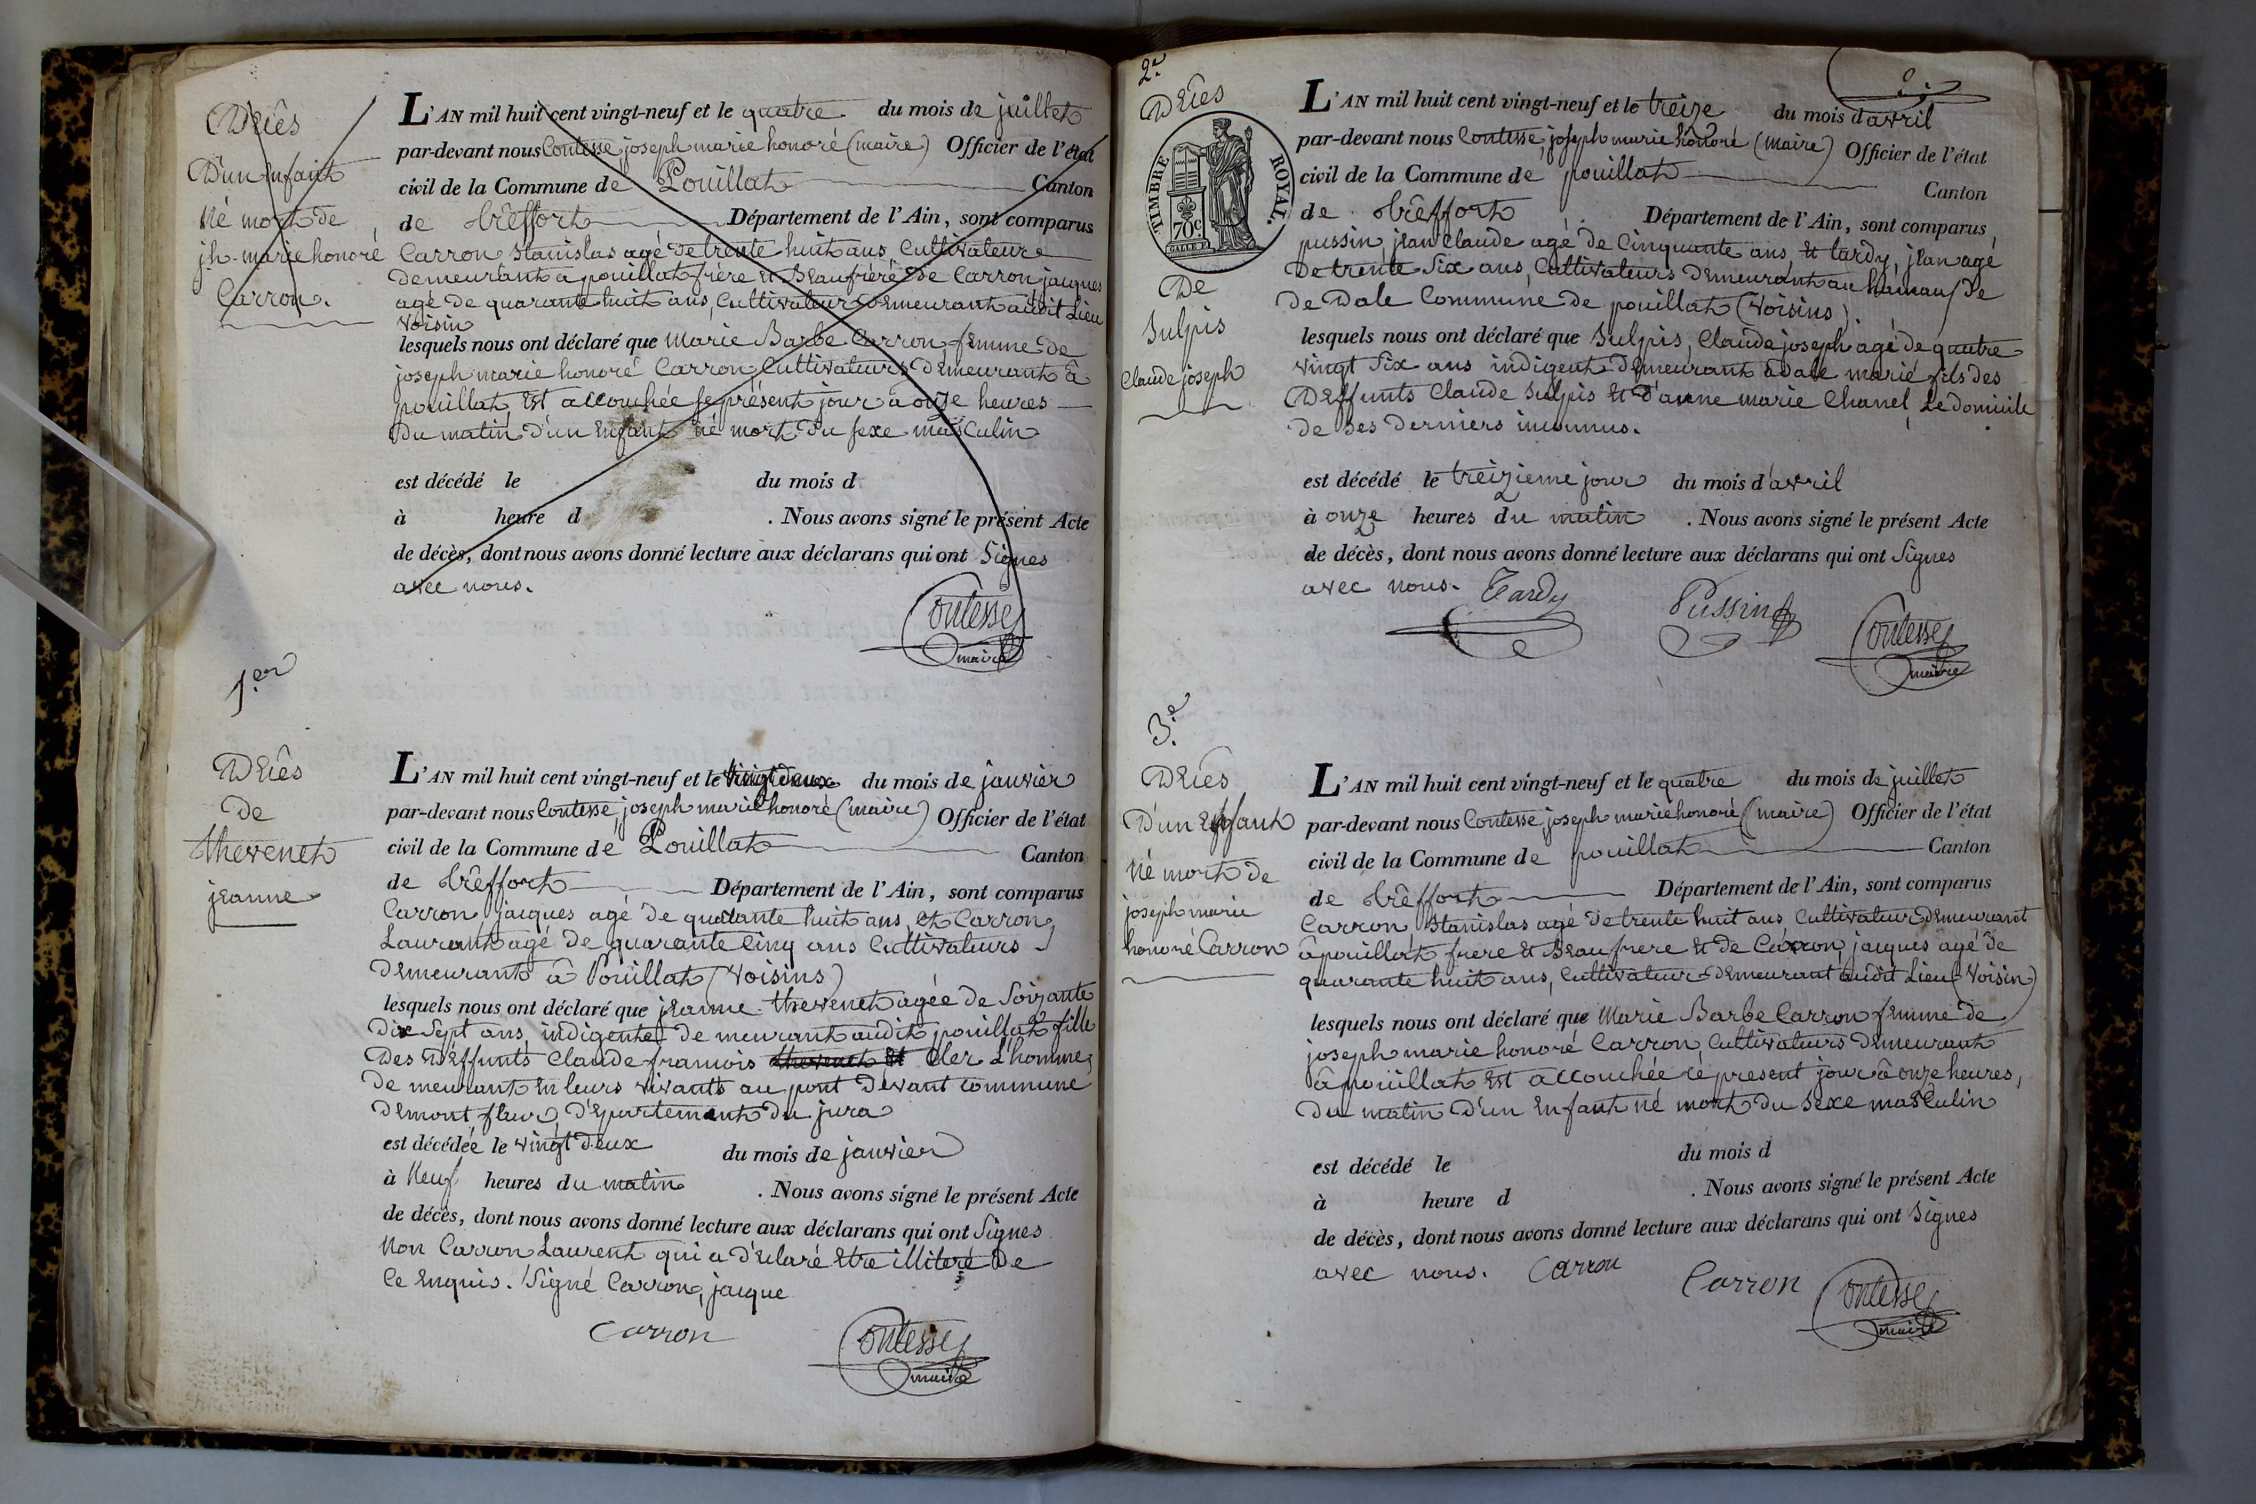 Décês
D'un Enfant
né mort de
jh. marie honoré
Carron.
L'AN mil huit cent vingt-neuf et le quatre du mois de juillet
par-devant nous Contesse, joseph marie honoré (maire) Officier de l'état
civil de la Commune de Pouillat Canton
de trêffort Département de l'Ain, sont comparus
Carron Stanislas agé de trente huit ans, Cultivateur
demeurant a pouillat frère et Beaufrère, et de Carron jacques
agé de quarante huit ans, Cultivateur demeurant audit Lieu
voisin
lesquels nous ont déclaré que Marie Barbe Carron femme de
joseph marie honoré Carron, Cultivateurs demeurant â
pouillat, Est accouchée se présent jour a onze heures
du matin d'un Enfant né mort du sexe masculin
est décédé le du mois d
à heure d . Nous avons signé le présent Acte
de décès, dont nous avons donné lecture aux déclarans qui ont Signes
avec nous.
Contesse
maire
1.er
Décês
de
thevenet
jeanne
L'AN mil huit cent vingt-neuf et le vingt deux du mois de janvier
par-devant nous Contesse, joseph marie honoré (maire) Officier de l'état
civil de la Commune de Pouillat Canton
de trêffort Département de l'Ain, sont comparus
Carron, jacques agé de quarante huit ans, et Carron,
Laurent agé de quarante Cinq ans Cultivateurs
demeurant â Pouillat (voisins)
lesquels nous ont déclaré que jeanne thevenet agée de Soixante
dix Sept ans, indigente, demeurant audit pouillat fille
des deffunts Claude francois thevenet et Cler L'homme,
de meurant en leurs vivants au pont devant commune
demont fleur, d'epartement du jura
est décédée le vingt deux du mois de janvier
à Neuf heures du matin . Nous avons signé le présent Acte
de décès, dont nous avons donné lecture aux déclarans qui ont Signes
Non Carron Laurent qui a d'éclaré Etre illiteré De
Ce Enquis. Signé Carron, jacque
Carron
Contesse
maire
2.e
Décès
TIMBRE ROYAL.
70c.
De
Sulpis
Claude joseph
L'AN mil huit cent vingt-neuf et le treize du mois d'avril
par-devant nous Contesse, joseph marie honoré (maire) Officier de l'état
civil de la Commune de pouillat Canton
de trêffort Département de l'Ain, sont comparus
pussin, jean Claude agé de Cinquante ans, et tardy, jean agé
de trente Six ans, Cultivateurs Demeurant au hamau de
de Dale Commune de pouillat (voisins)
lesquels nous ont déclaré que Sulpis, Claude joseph agé de quatre
vingt Six ans indigent demeurant a dale marié fils des
Deffunts Claude Sulpis et d'anne marie Chanel, Le domicile
de ses derniers inconnus.
est décédé le treizieme jour du mois d'avril
à onze heures du matin . Nous avons signé le présent Acte
de décès, dont nous avons donné lecture aux déclarans qui ont Signes
avec nous. Tardy Pussin Contesse
maire
3.e
Décés
D'un Enfant
Né mort de
joseph marie
honoré Carron
L'AN mil huit cent vingt-neuf et le quatre du mois de juillet
par-devant nous Contesse, joseph marie honoré (maire) Officier de l'état
civil de la Commune de pouillat Canton
de trêffort Département de l'Ain, sont comparus
Carron, Stanislas agé de trente huit ans, Cultivateur demeurant
â pouillat frere et Beaufrere et de Carron, jacques agé de
quarante huit ans, Cultivateur demeurant audit Lieu (voisin)
lesquels nous ont déclaré que Marie Barbe Carron femme de
joseph marie honoré Carron, Cultivateurs demeurant
â pouillat Est accouchée ce present jour â onze heures,
du matin d'un Enfant né mort du sexe masculin
est décédé le du mois d
à heure d . Nous avons signé le présent Acte
de décès, dont nous avons donné lecture aux déclarans qui ont Signes
avec nous. Carron Carron Contesse
maire